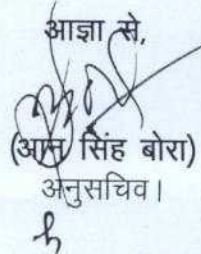 आज्ञा से,
(आन सिंह बोरा)
अनुसचिव।